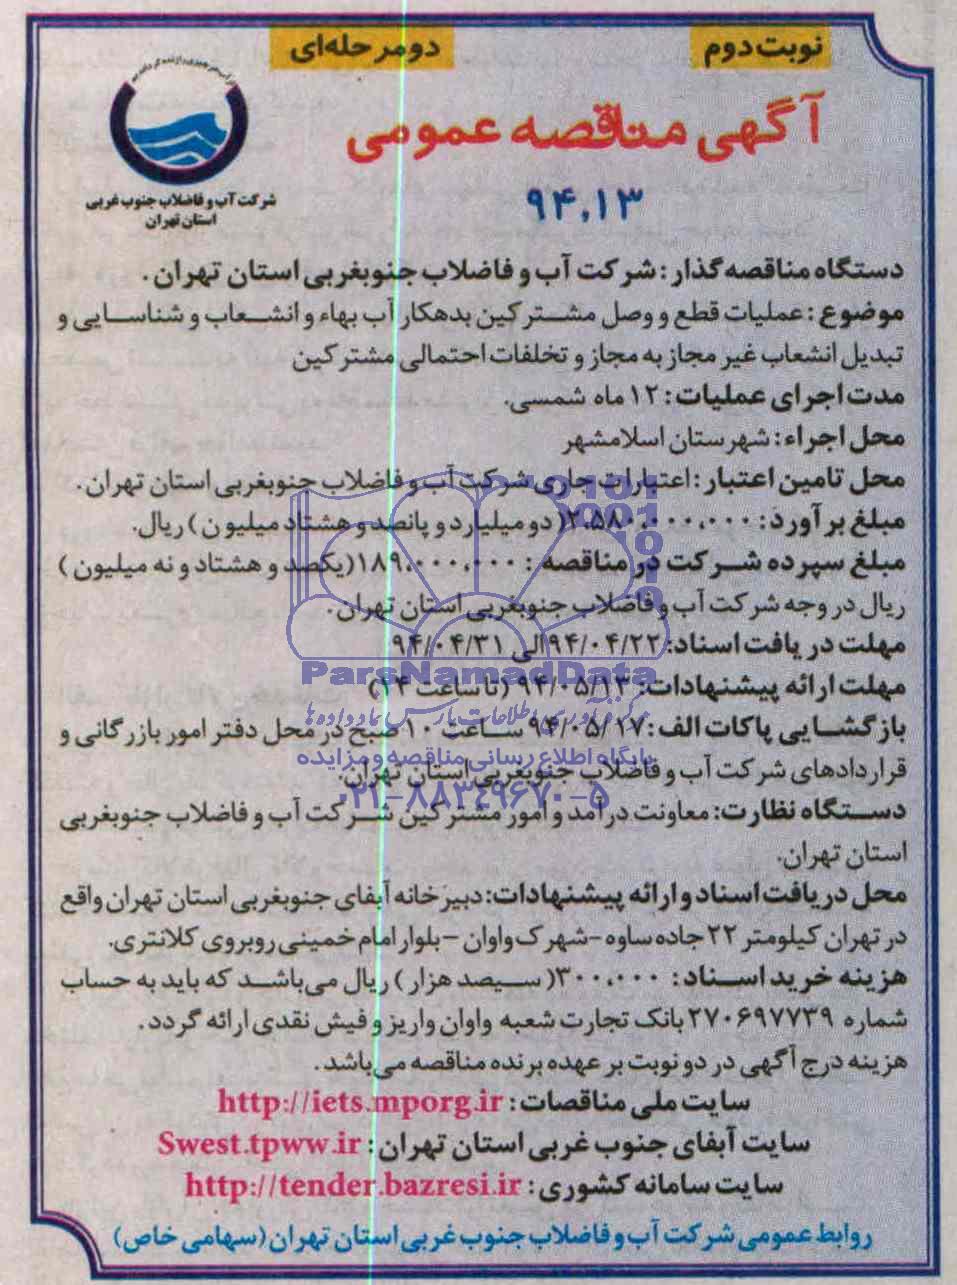 نوبت دوم
دومرحله‌ای
آگهی مناقصه عمومی
۹۴.۱۳
شرکت آب و فاضلاب جنوب غربی
استان تهران
دستگاه مناقصه گذار: شرکت آب و فاضلاب جنوبغربی استان تهران.
موضوع: عملیات قطع و وصل مشترکین بدهکار آب بهاء و انشعاب و شناسایی و
تبدیل انشعاب غیر مجاز به مجاز و تخلفات احتمالی مشترکین
مدت اجرای عملیات: ۱۲ ماه شمسی.
محل اجراء: شهرستان اسلامشهر
محل تامین اعتبار: اعتبارات جاری شرکت آب و فاضلاب جنوبغربی استان تهران.
مبلغ برآورد: ۲.۵۸۰.۰۰۰.۰۰۰( دو میلیارد و پانصد و هشتاد میلیون ) ریال.
مبلغ سپرده شرکت در مناقصه: ۱۸۹.۰۰۰.۰۰۰(یکصد و هشتاد و نه میلیون )
ریال در وجه شرکت آب و فاضلاب جنوبغربی استان تهران.
مهلت دریافت اسناد: ۹۴/۰۴/۲۲ الی ۹۴/۰۴/۳۱
مهلت ارائه پیشنهادات: ۹۴/۰۵/۱۳ (تا ساعت ۱۴)
بازگشایی پاکات الف: ۹۴/۰۵/۱۷ ساعت ۱۰ صبح در محل دفتر امور بازرگانی و
قراردادهای شرکت آب و فاضلاب جنوبغربی استان تهران.
دستگاه نظارت: معاونت درآمد و امور مشترکین شرکت آب و فاضلاب جنوبغربی
استان تهران.
محل دریافت اسناد و ارائه پیشنهادات: دبیرخانه آبفای جنوبغربی استان تهران واقع
در تهران کیلومتر ۲۲ جاده ساوه -شهرک واوان - بلوار امام خمینی روبروی کلانتری.
هزینه خرید اسناد: ۳۰۰.۰۰۰( سیصد هزار ) ریال می‌باشد که باید به حساب
شماره ۲۷۰۶۹۷۷۳۹ بانک تجارت شعبه واوان واریز و فیش نقدی ارائه گردد.
هزینه درج آگهی در دو نوبت بر عهده برنده مناقصه می‌باشد.
سایت ملی مناقصات: http://iets.mporg.ir
سایت آبفای جنوب غربی استان تهران: Swest.tpww.ir
سایت سامانه کشوری: http://tender.bazresi.ir
روابط عمومی شرکت آب و فاضلاب جنوب غربی استان تهران (سهامی خاص)
ParsNamadData
مرکز فرآوری اطلاعات پارس نماد داده ها
پایگاه اطلاع رسانی مناقصه و مزایده
۰۲۱-۸۸۳۴۹۶۷۰-۵